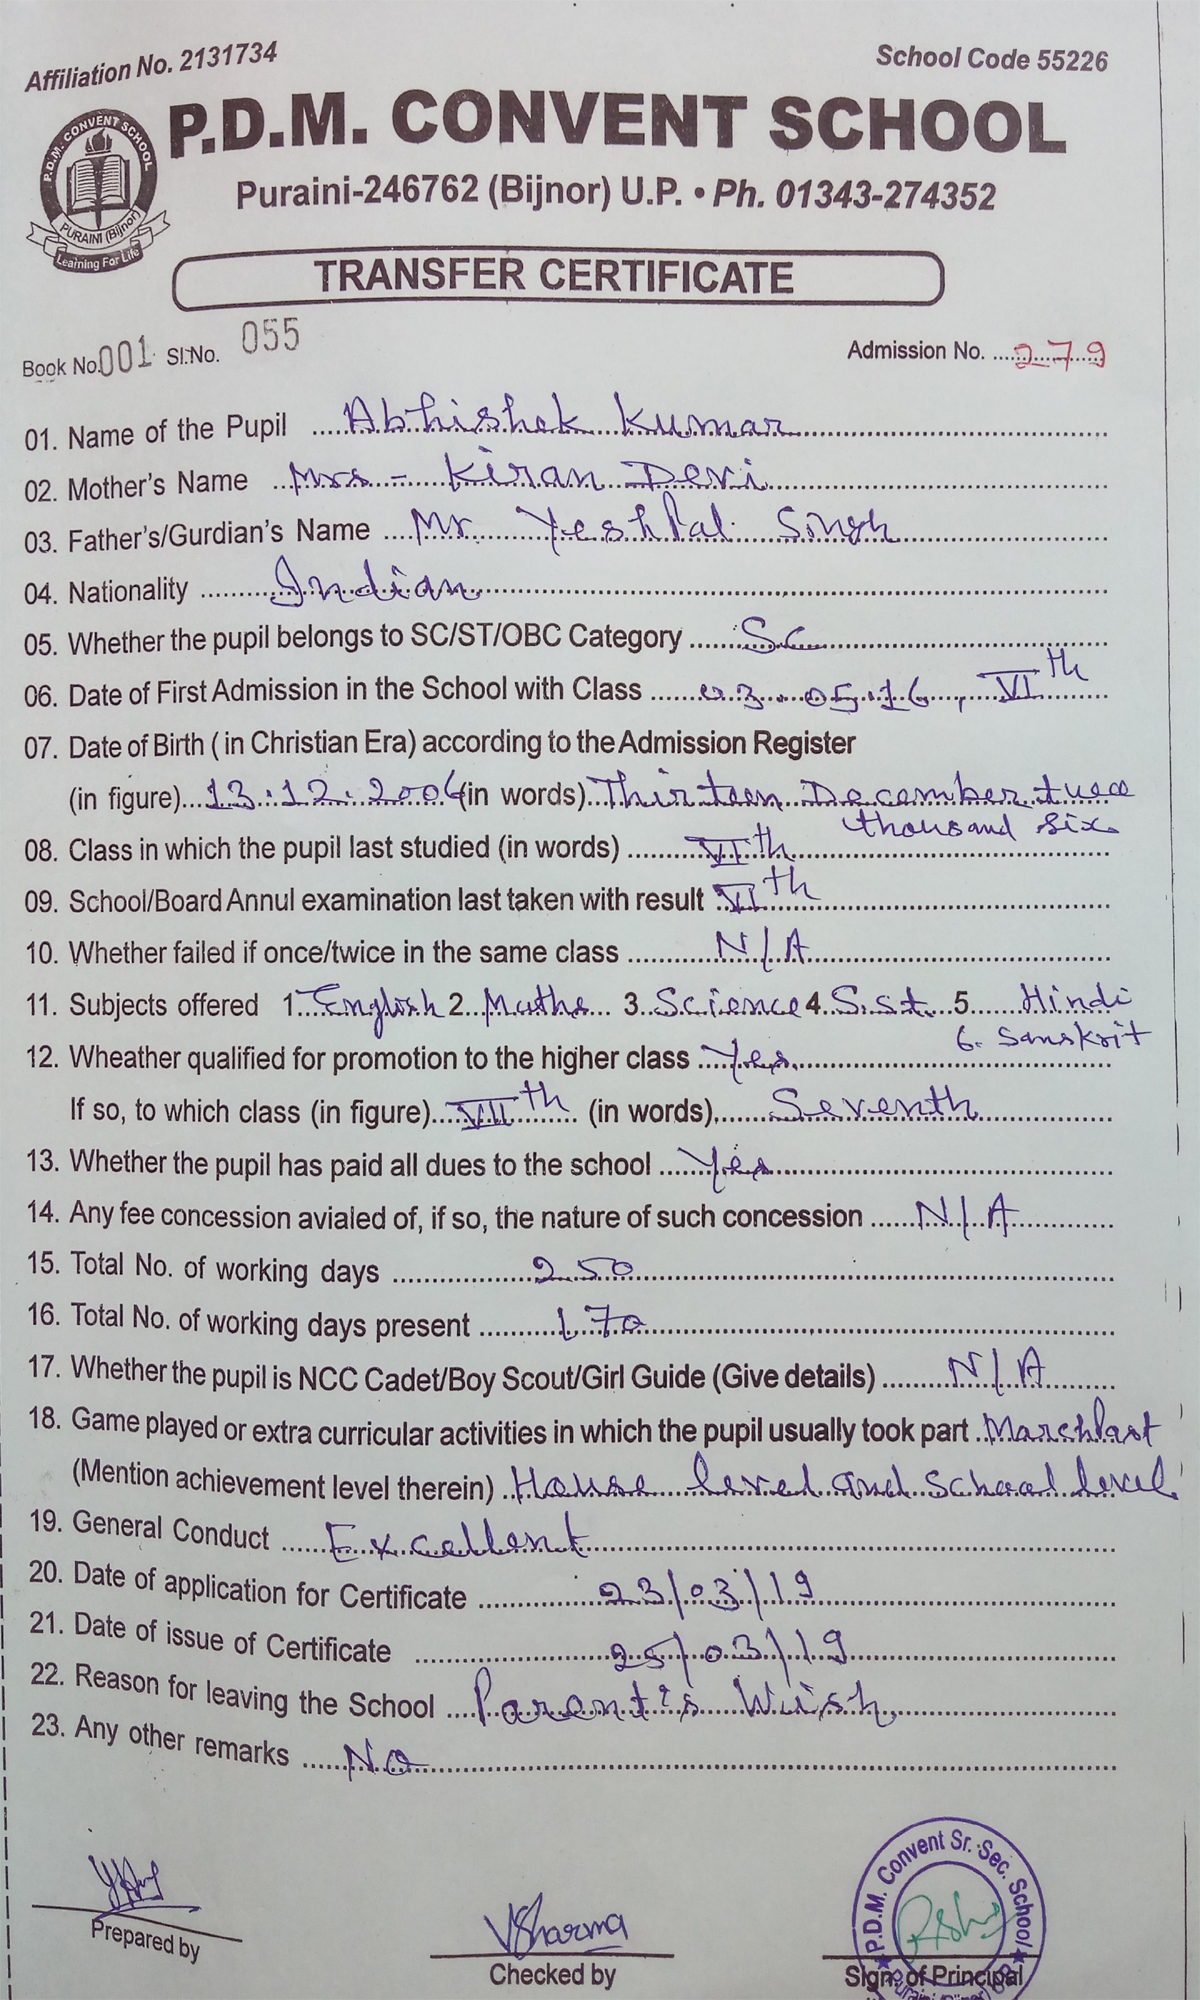 Affiliation No. 2131734
School Code 55226
P.D.M. CONVENT SCHOOL
P.D.M. CONVENT SCHOOL
PURAINI (Bijnor)
Learning For Life
Puraini-246762 (Bijnor) U.P. • Ph. 01343-274352
TRANSFER CERTIFICATE
Book No. 001 Sl.No. 055
Admission No. 279
01. Name of the Pupil Abhishek Kumar
02. Mother's Name Mrs - Kiran Devi
03. Father's/Gurdian's Name Mr. YeshPal Singh
04. Nationality Indian
05. Whether the pupil belongs to SC/ST/OBC Category S.C
06. Date of First Admission in the School with Class 03.05.16, VIth
07. Date of Birth ( in Christian Era) according to the Admission Register
(in figure) 13.12.2006 (in words) Thirteen December
thousand six
08. Class in which the pupil last studied (in words) VIth
09. School/Board Annul examination last taken with result VIth
10. Whether failed if once/twice in the same class N/A
11. Subjects offered 1. English 2. Maths 3. Science 4. S.st. 5. Hindi
6. Sanskrit
12. Wheather qualified for promotion to the higher class Yes
If so, to which class (in figure) VIIth (in words) Seventh
13. Whether the pupil has paid all dues to the school Yes
14. Any fee concession avialed of, if so, the nature of such concession N/A
15. Total No. of working days 250
16. Total No. of working days present 170
17. Whether the pupil is NCC Cadet/Boy Scout/Girl Guide (Give details) N/A
18. Game played or extra curricular activities in which the pupil usually took part MarchPast
(Mention achievement level therein) House level and School level
19. General Conduct Excellent
20. Date of application for Certificate 23/03/19
21. Date of issue of Certificate 25/03/19
22. Reason for leaving the School Parent's Wish
23. Any other remarks NO
P.D.M. Convent Sr. Sec. School
Prepared by
VSharma
Checked by
Sign. of Principal